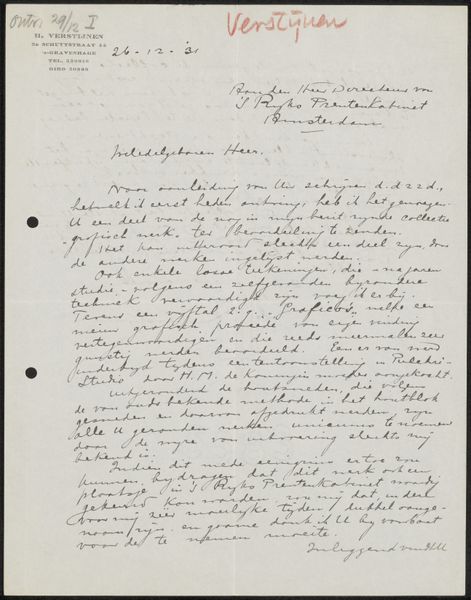 Ontv. 29/12 I
Verstijnen
H. VERSTIJNEN
2e SCHUYTSTRAAT
's-GRAVENHAGE
TEL.
GIRO
26-12-'31
Aan den Heer Directeur van
'S Ryks Prentenkabinet
Amsterdam
Weledelgeboren Heer.
Naar aanleiding van Uw schrijven d.d. 22 d.,
hetwelk ik eerst heden ontving, heb ik het genoegen
U een deel van de nog in myn bezit zynde collectie
grafisch werk ter beoordeeling te zenden.
Het kan uiteraard slechts een deel zyn, daar
de andere werken ingelyst werden.
Ook enkele losse teekeningen, die - na jaren
studie - volgens een zelfgevonden byzondere
techniek vervaardigd zyn voeg ik er by.
Tevens een vyftal z.g. "Grafico's" welke een
nieuw grafisch procédé van eigen vinding
vertegenwoordigen en die reeds meermalen zeer
gunstig werden beoordeeld. Een er van werd
onderwyl tydens een tentoonstelling in Pulchri
Studio door H.M. de Koningin aangekocht.
Uitgezonderd de houtsneden, die volgens
de van ouds bekende methode in het houtblok
gesneden en daarvan afgedrukt werden, zyn
alle U gezonden werken unicums te noemen
daar de wyze van uitvoering slechts my
bekend is.
Indien dit mede eenigszins er toe zou
kunnen bydragen dat dit werk ook een
plaatsje in 'S Ryks Prentenkabinet waardig
gekeurd kon worden zou my dat, in deze
voor my zeer moeilyke tyden, dubbel aange-
naam zyn en gaarne dank ik U by voorbaat
voor de te nemen moeite.
Inliggend